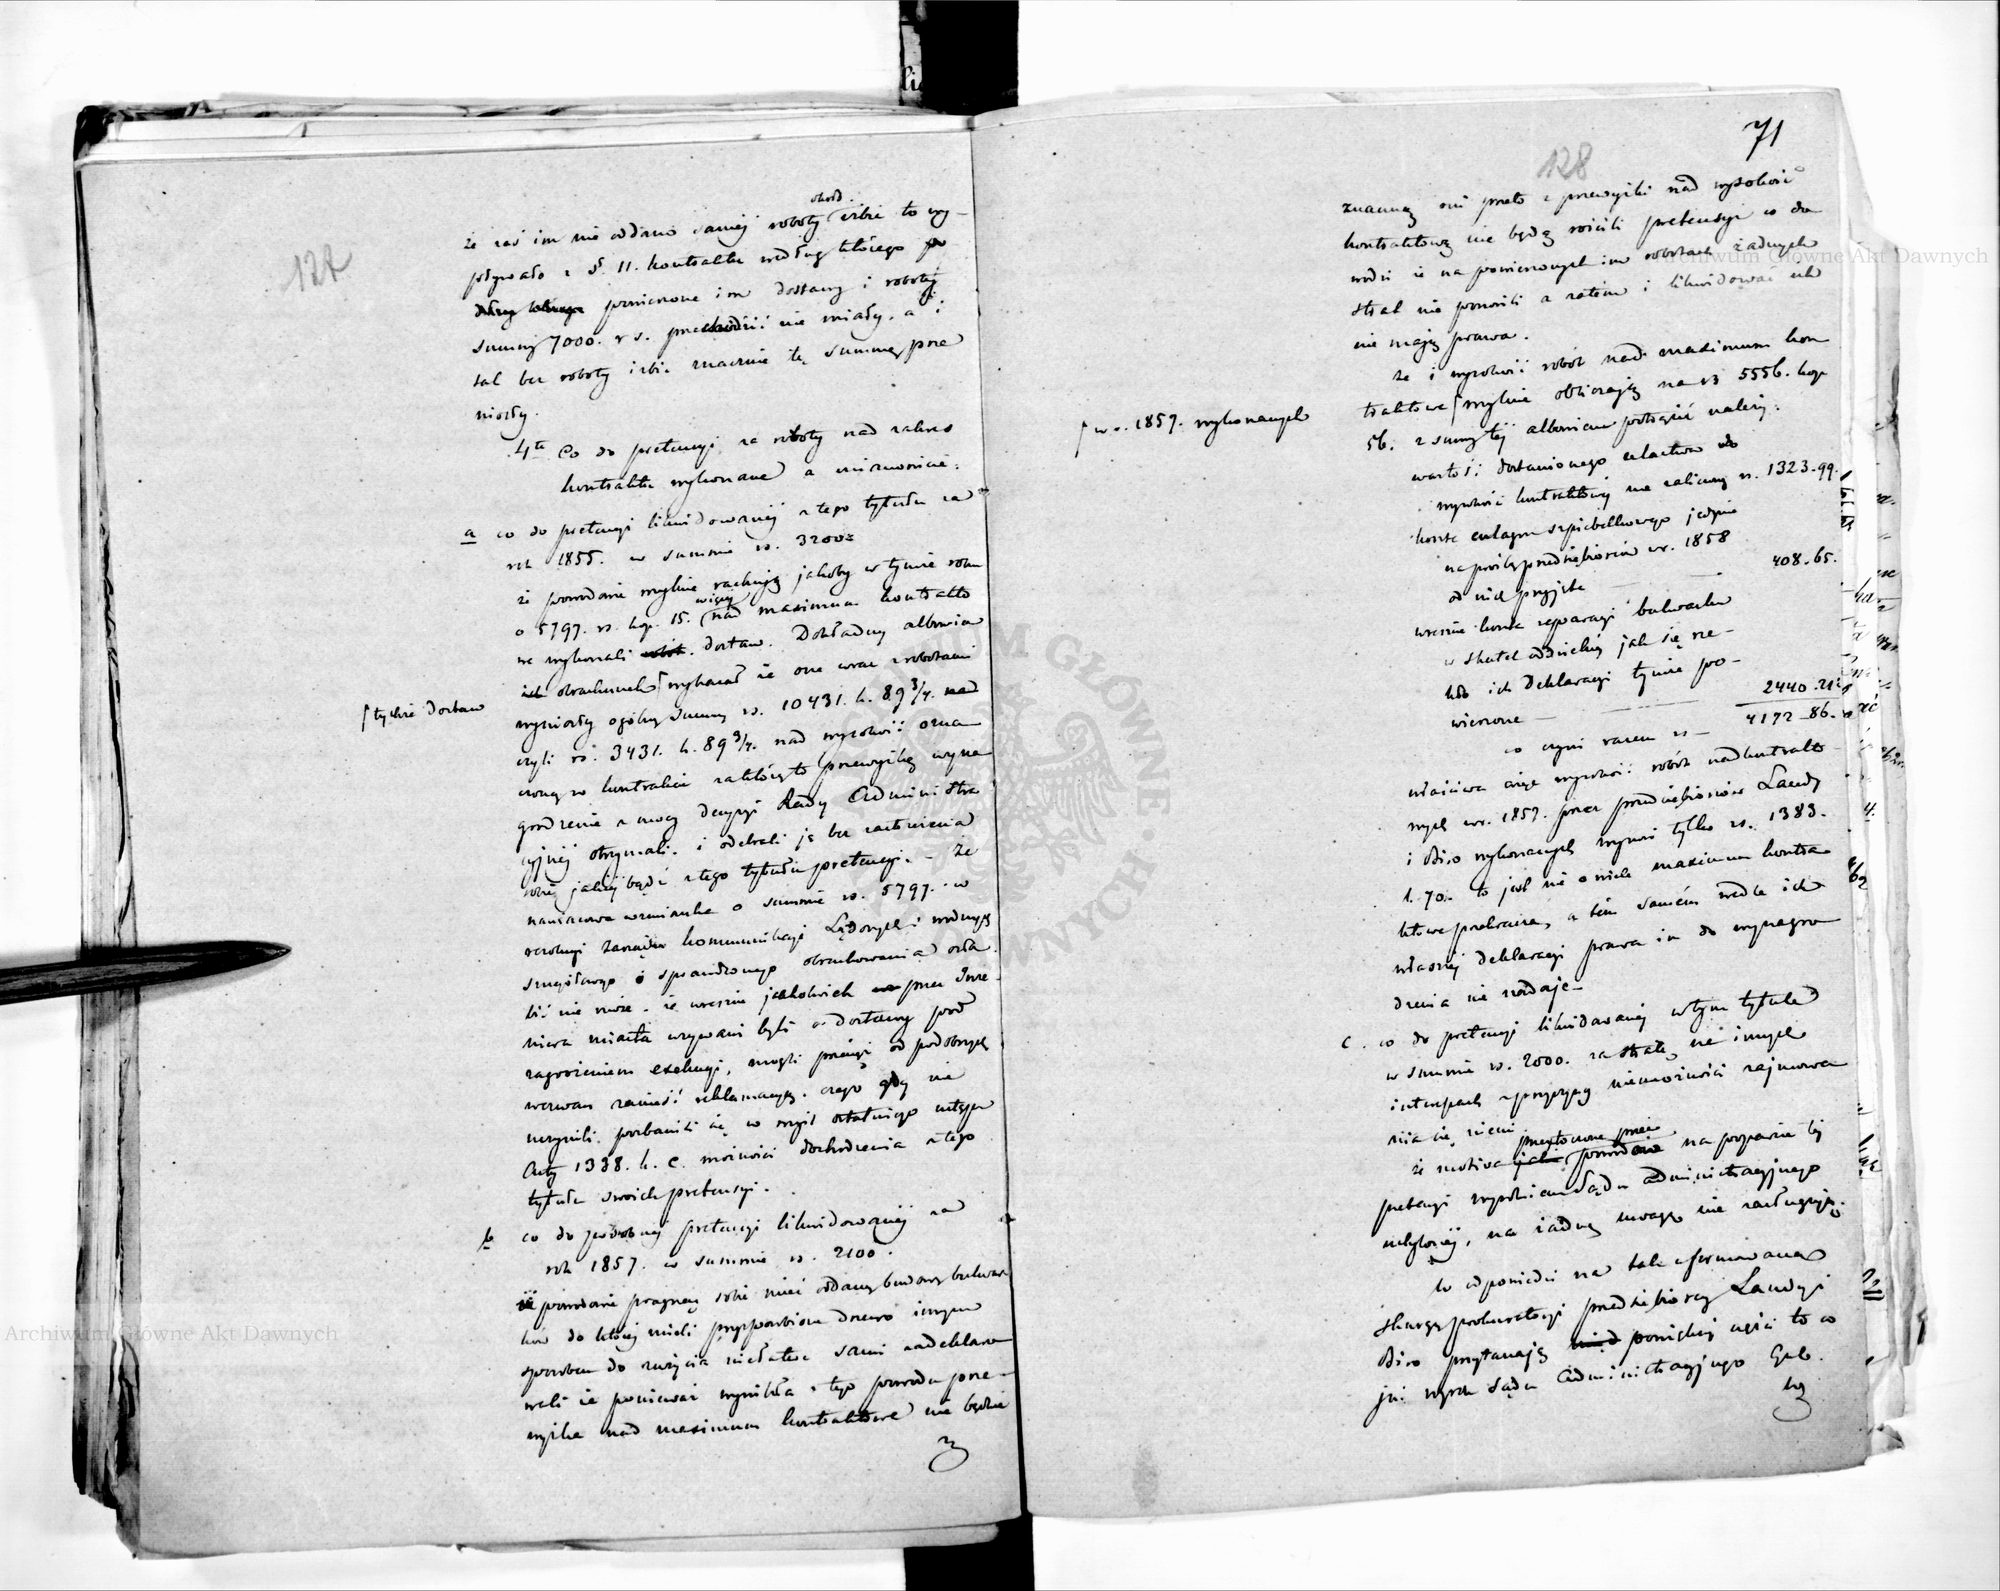 127
że zaś im nie oddano samej roboty izbic to wy-
pływało z § 11. kontraktu według którego
powierzone im dostawy i roboty
summy 7000. rs. przechodzić nie miały, a i
tak bez roboty izbic znacznie tę summę prze
niosły.
4te Co do pretensyi za roboty nad zakres
kontraktu wykonane a mianowicie:
a co do pretensyi likwidowanej z tego tytułu za
rok 1855. w summie rs. 3200
że powodowie mylnie rachują jakoby w tymże roku
o 5797. rs. kop. 15. więcej nad maximum kontrakto
we wykonali dostaw. Dokładny albowiem
obrachunek wykazał że one wraz z robotami
⌈tychże dostaw
wyniosły ogólną summę rs. 10431. k. 89 3/4.
czyli rs. 3431. k. 89 3/4. nad wysokość ozna
czoną w kontrakcie za którą to przewyżkę wyna
grodzenie z mocy decyzyi Rady Administra
cyjnej otrzymali. i odebrali ją bez zastrzeżenia
sobie jakiejbądź z tego tytułu pretensyi. – Że
nawiasowa wzmianka o summie rs. 5797. w
Zarządu Kommunikacyi Lądowych i wodnych
szczegółowego i sprawdzonego obrachowania osła
bić nie może. że wreszcie jakkolwiek przez Inże
niera miasta wzywani byli o dostawy pod
zagrożeniem exekucyi, mogli przecież od podobnych
wezwań zanieść reklamacyę. czego gdy nie
uczynili. pozbawili się w myśl ostatniego ustępu
Arty 1338. k. C. możności dochodzenia z tego
tytułu swoich pretensyi.
b co do podobnej pretensyi likwidowanej za
rok 1857. w summie rs. 2100.
że powodowie pragnąc sobie mieć oddaną budowę bulwar
ków do której mieli przysposobione drzewo innym
sposobem do zużycia niełatwe sami zadeklaro
wali że ponieważ wynikła z tego powodu prze-
wyżka nad maximum kontraktowe nie będzie
71
128
znaczną oni przeto z przewyżki nad wysokość
kontraktową nie będą rościli pretensyi co do
wodzi że na powierzonych im robotach żadnych
strat nie ponosili a zatem i likwidować ich
nie mają prawa.
że i wysokość robót nad maximum kon
traktowe ⌈mylnie obliczają na rs 5556. kop
⌈w r. 1857. wykonanych
56. z summy tej albowiem potrącić należy:
wartość dostawionego
wysokość kontraktowej nie zaliczoną rs. 1323.99.
koszt jedynie
na prośbę przedsiębiorców w r. 1858
od nich przyjęte — 408.65.
wreszcie koszt reparacyi bulwarku
w skutek oddzielnej jak się rze-
kło ich deklaracyi tymże po-
wierzone — 2440.21
co czyni razem rs – 4172.86.
właściwa więc wysokość robót nadkontrakto
wych w r. 1857. przez przedsiębiorców Laudy
i Biro wykonanych wynosi tylko rs. 1383.
k. 70. to jest nie o wiele maximum kontra
ktowe przekracza, a tém samém wedle ich
własnej deklaracyi prawa im do wynagro
dzenia nie nadaje –
c. co do pretensyi likwidowanej w tym tytule
w summie rs. 2000. za stratę na innych
interesach z przyczyny niemożności zajmowa
nia się niemi
że motiva przytoczone przez powodów na poparcie tej
pretensyi wyrokiem Sądu administracyjnego
uchylonej, na żadną uwagę nie zasługują.
w odpowiedzi na tak sformowaną
skargę prokuratoryi przedsiębiorcy Laudy i
Biro przytaczają poniekąd części to co
już wyrok Sądu Administracyjnego Gub.